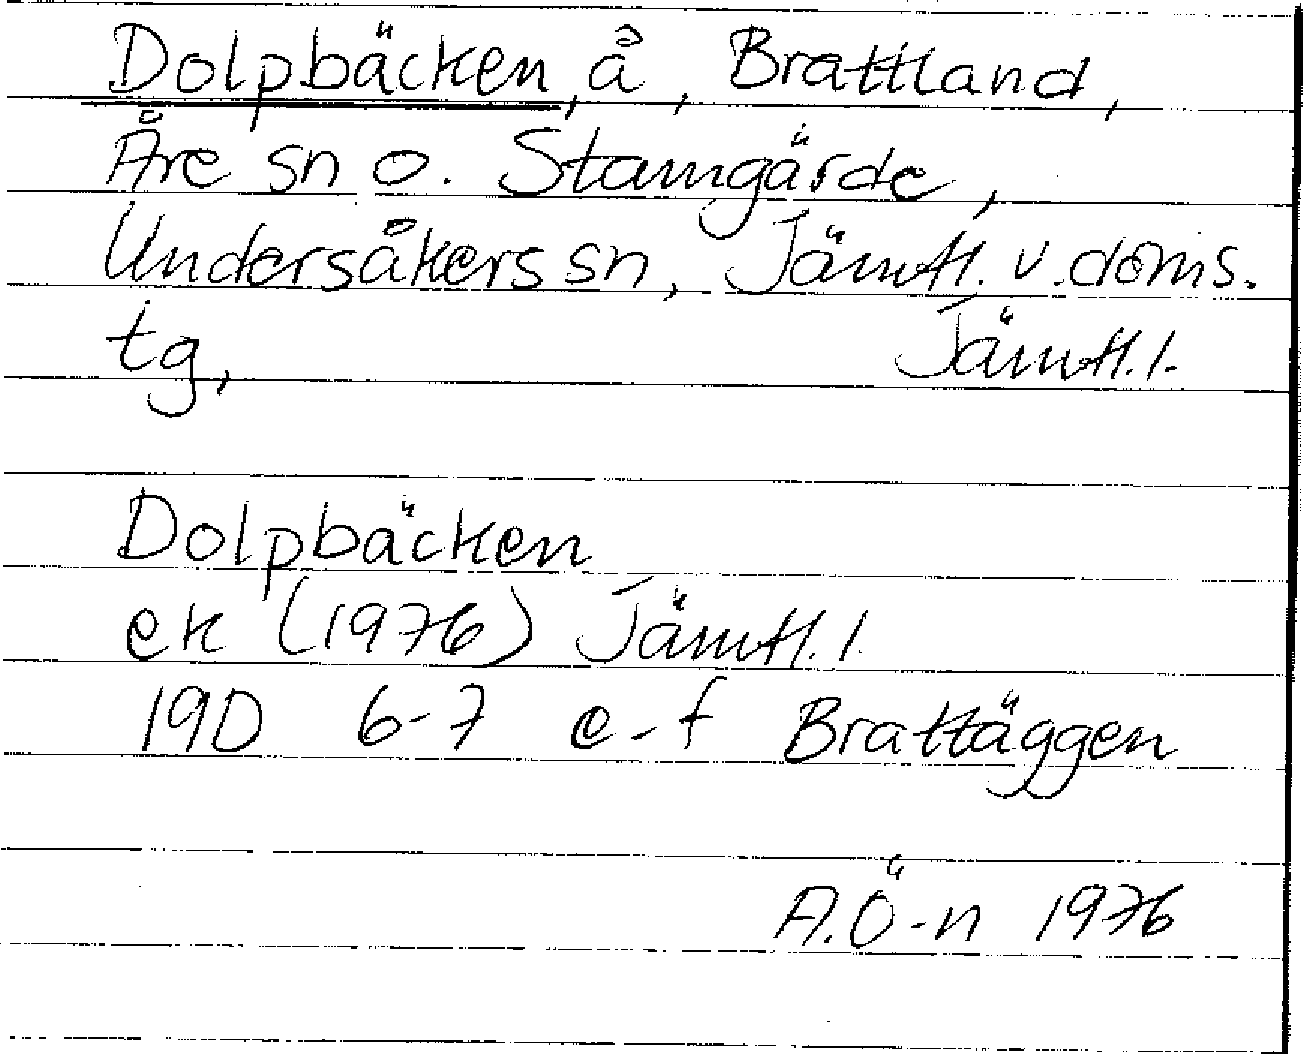 Dolpbäcken, å, Brattland,
Åre sn o. Stamgärde,
Undersåkers sn, Jämtl. v. doms.
tg, Jämtl. l.
Dolpbäcken
ek (1976) Jämtl. l.
19D 6-7 e-f Brattäggen
A.Ö-n 1976